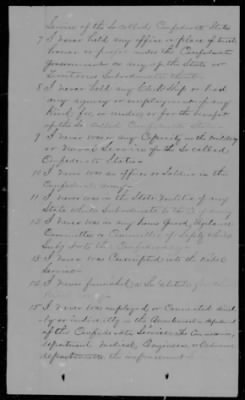 Service of the So called Confederate States
7 I never held any office or place of trust
honor or profit under the Confederate
government or any of the States or
Territories Subordinate thereto
8 I never held any Clerk Ship or had
any agency or employment of any
kind, fee, or
of the So called Confederate States
9 I never was in any Capacity in the Military
or Naval Service of the So called
Confederate States
10 I never was an officer or Soldier in the
Confederate army
11 I never was in the State Militia of any
State while Subordinate to the
12 I never was in any Home Guard, Vigilance
Committee or Committee of Safety while
Subject to the Confederacy
13 I never was Conscripted into the Rebel
Service
14 I never furnished a Substitute
15 I never was employed or Connected direct
ly or indirectly in the
of the Confederate Service The Commissary,
department Medical, Engineer, or Ordnance
departments